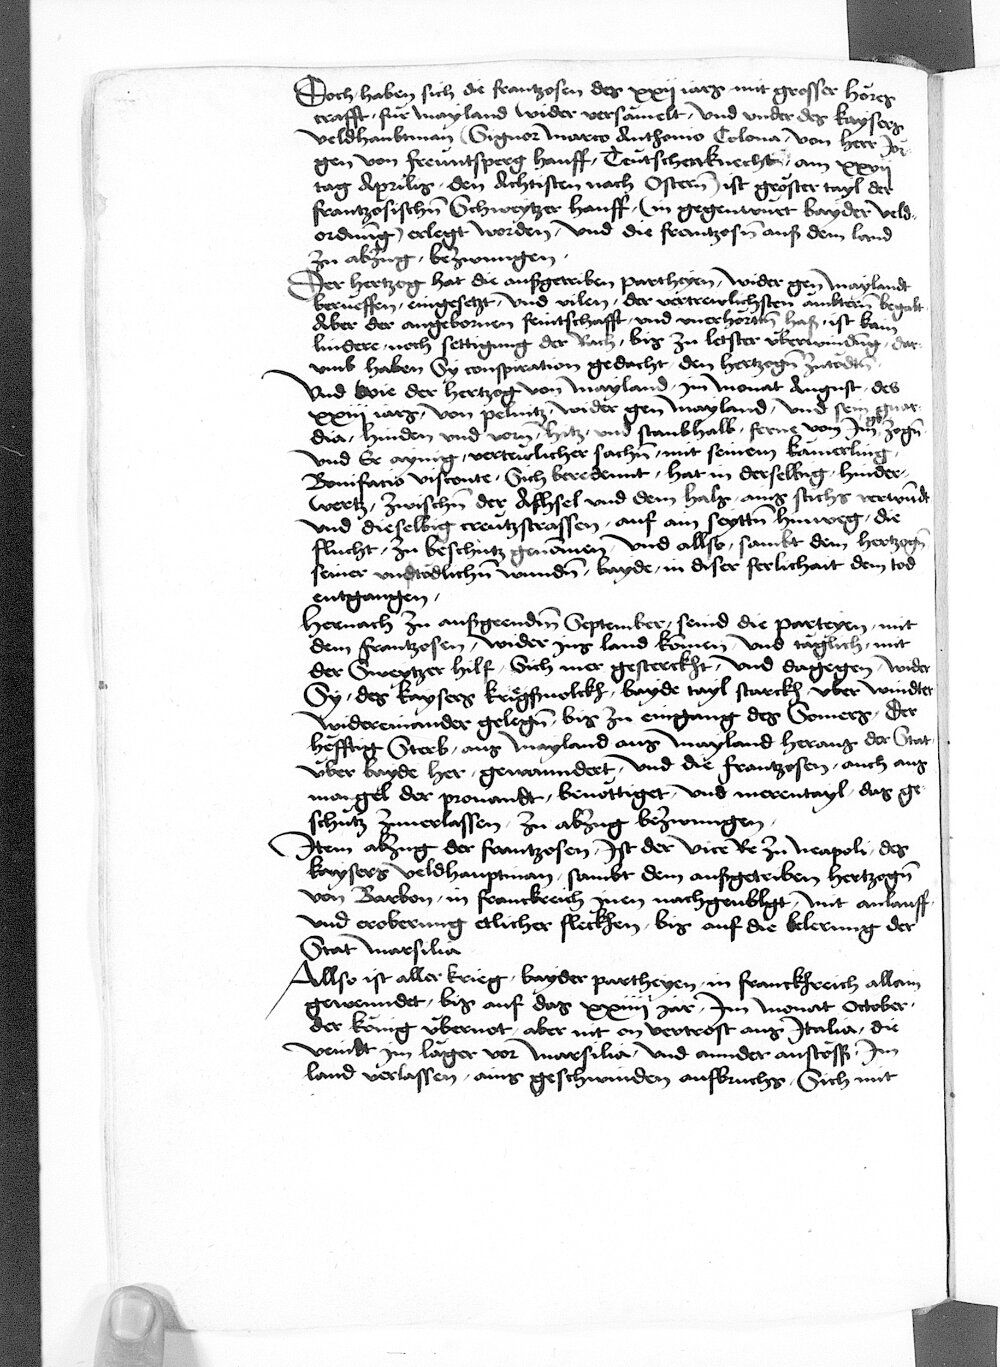 Doch haben sich die frantzosen des xxij iars mit grosser höres
crafft, für mayland wider versamelt, und under des kaysers
veldhaubtman (Signor Marco Anthonio Colona, von herr Jör-
gen von freuntsperg hauff, Teutscherknecht, am xxvij
tag Aprilis, den Achtisten nach Ostern) ist gröster tayl der
frantzosischn Schweytzer hauff (in gegenwurt bayder veld-
ordnung) erlegt worden, und die frantzosn auß dem land
zu abzug, bezwungen.
Der hertzog hat die außgetriben partheyen, wider gen maylandt
berueffen, eingesetzt, und vilen, der vertrewlichsten ambtern begabt,
Aber der angebornen feintschafft, und unerhörttn haß, ist kain
lindere, noch settigung der Rach, bis zu letster überwindung, dar-
umb haben Sy conspiration gedacht, den hertzogn zutödtn,
Und wie der hertzog von mayland, im monat August, des
xxiij iars, von wider gen mayland, und sein guar-
dia, hinden und vorn, hitz, und staubhalb, ferne von Im, zogn
und Er aynig, vertrulicher sachn, mit seinem kamerling,
Bonifacio visconte, Sich beredennt, hat in derselbig, hinder-
wertz, zwischn der Achsel und dem hals, ains stichs verwundt
und dieselbig creutzstrassen, auf ain seyttn hinweg, die
flucht, zu beschutz genomen, und allso, sambt dem hertzogn
seiner undtödlichn wundn, bayde, in diser ferlichait dem tod
entgangen,
Hernach zu außgeendm September, seind die parteyen, mit
dem frantzosen, wider ins land komen, und täglich, mit
der Sweytzer hilf, Sich mer gesterckht, und dagegen, wider
Sy, des kaysers kriegsfwolckh, bayde tayl starckh, über windter
widereinander gelegn, bis zu eingang des Somers, Der
hefftig Sterb, aus mayland aus mayland heraus der Stat,
über bayde her, gewanndert, und die frantzosen, auch aus
mangel der provandt, benöttiget, und merentayl, das ge-
schutz zuverlassen, zu abzug bezwungen,
Item abzug der frantzosen, Ist der vice Re zu neapoli, des
kaysers veldhauptman, sambt dem außgetriben hertzogn
von Barbon, in franckreich inen nachgevolgt, mit anlauff,
und eroberung etlicher fleckhen, bis auf die belerung der
Stat Marsilia
Allso ist aller krieg, bayder partheyen, in franckhreich allain
gewenndet, bis auf das xxiiij jar, Im monat October,
der könig übernot, aber nit on vertrost aus Italia, die
veindt im läger vor Marsilia, und annder anstöss, Im
land verlassen, ains geschwinden aufbruchs, Sich mit